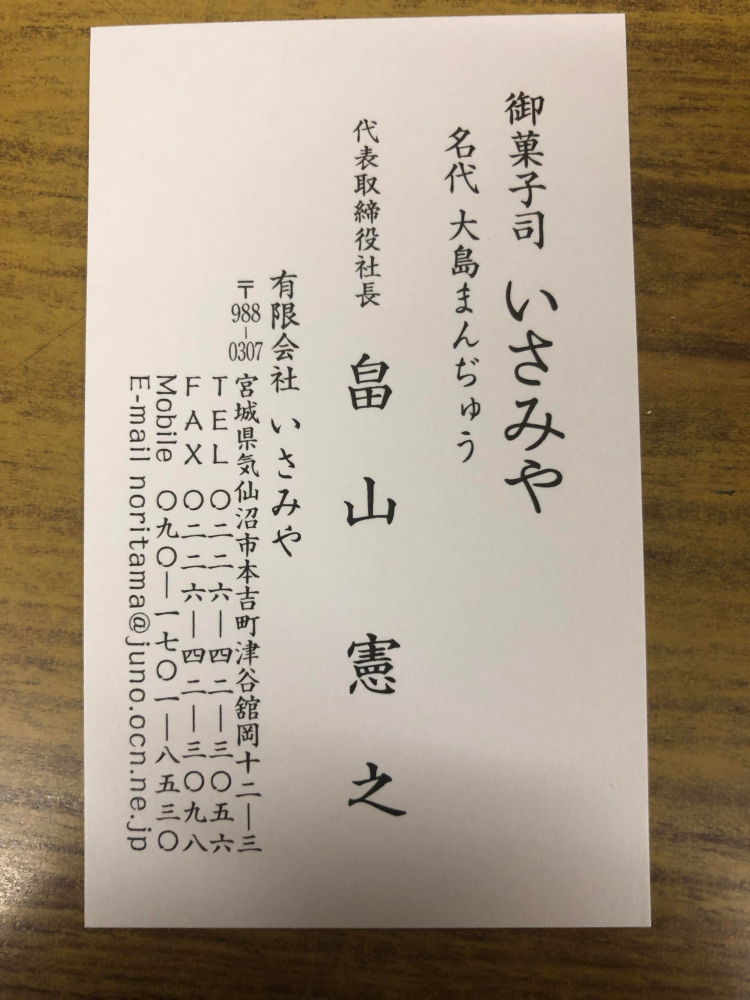 御菓子司 いさみや
名代 大島まんぢゅう
代表取締役社長 畠山憲之
有限会社 いさみや
〒988-0307 宮城県気仙沼市本吉町津谷舘岡十二―三
TEL 〇二二六―四二―三〇五六
FAX 〇二二六―四二―三〇九八
Mobile 〇九〇―一七〇一―八五三〇
E-mail noritama@juno.ocn.ne.jp